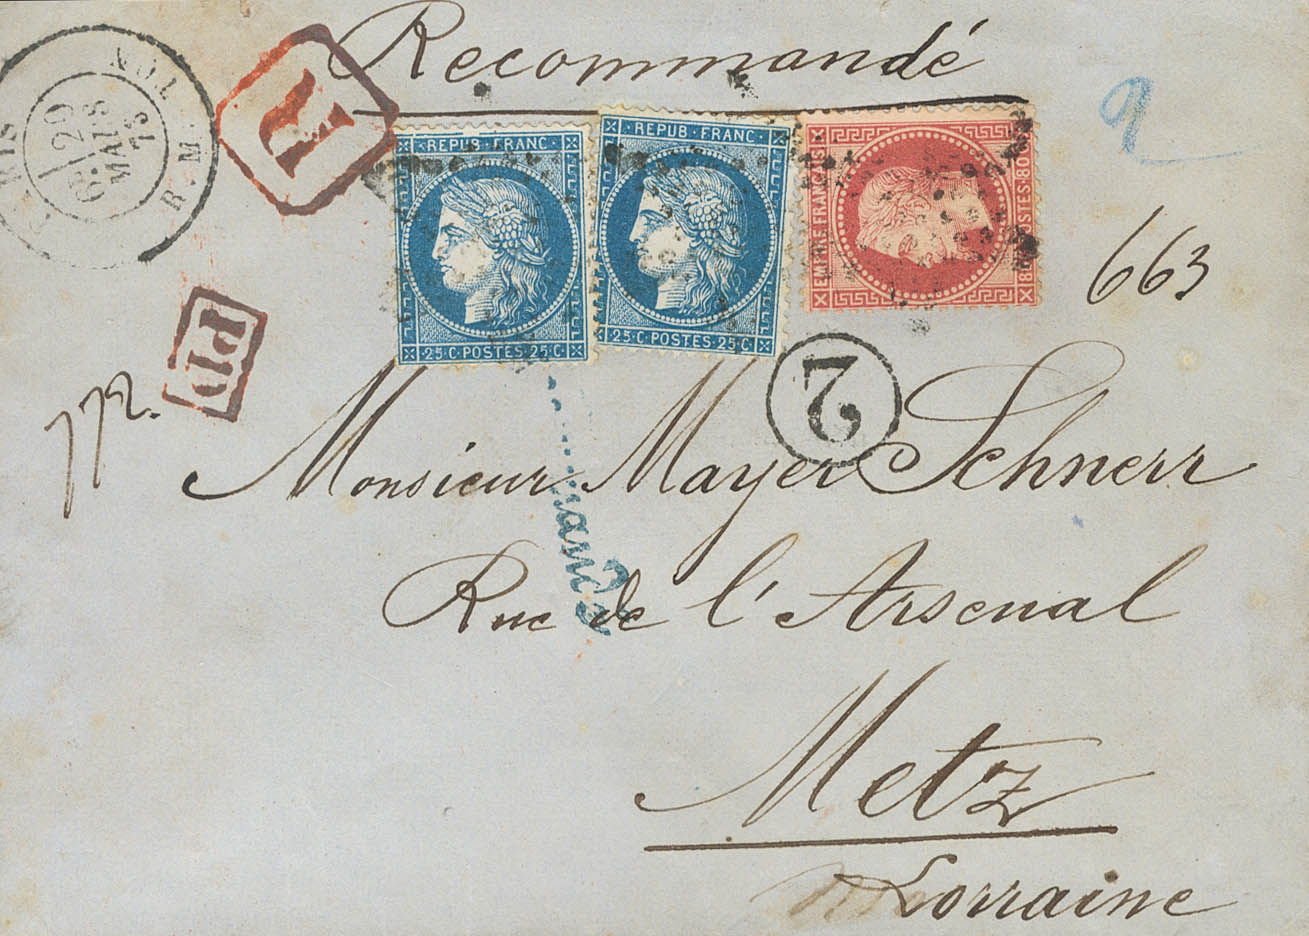 Recommandé
R
2
REPUB·FRANC
25·C·POSTES·25·C
REPUB·FRANC
25·C·POSTES·25·C
EMPIRE FRANÇAIS
POSTES
20
MARS
73
R. M
663
PD
772.
2
Monsieur Mayer Schnerr
Rue de l'Arsenal
Metz
Lorraine